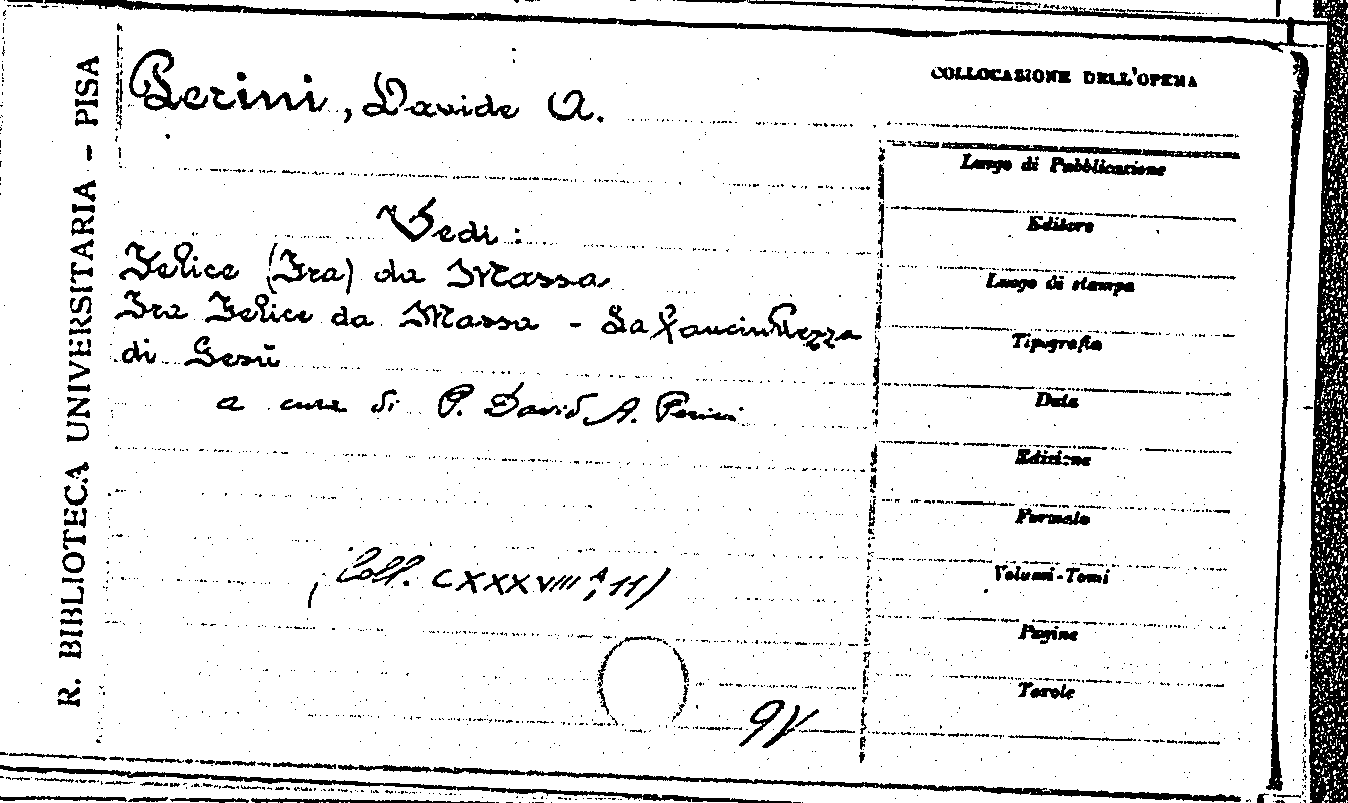 R. BIBLIOTECA UNIVERSITARIA - PISA
Perini, Davide A.
Vedi:
Felice (Fra) da Massa
Fra Felice da Massa - La fanciullezza
di Gesù
a cura di P. David A. Perini
(Coll. CXXXVIII A, 11)
COLLOCAZIONE DELL'OPERA
Luogo di Pubblicazione
Editore
Luogo di stampa
Tipografia
Data
Edizione
Formato
Volumi-Tomi
Pagine
Tavole